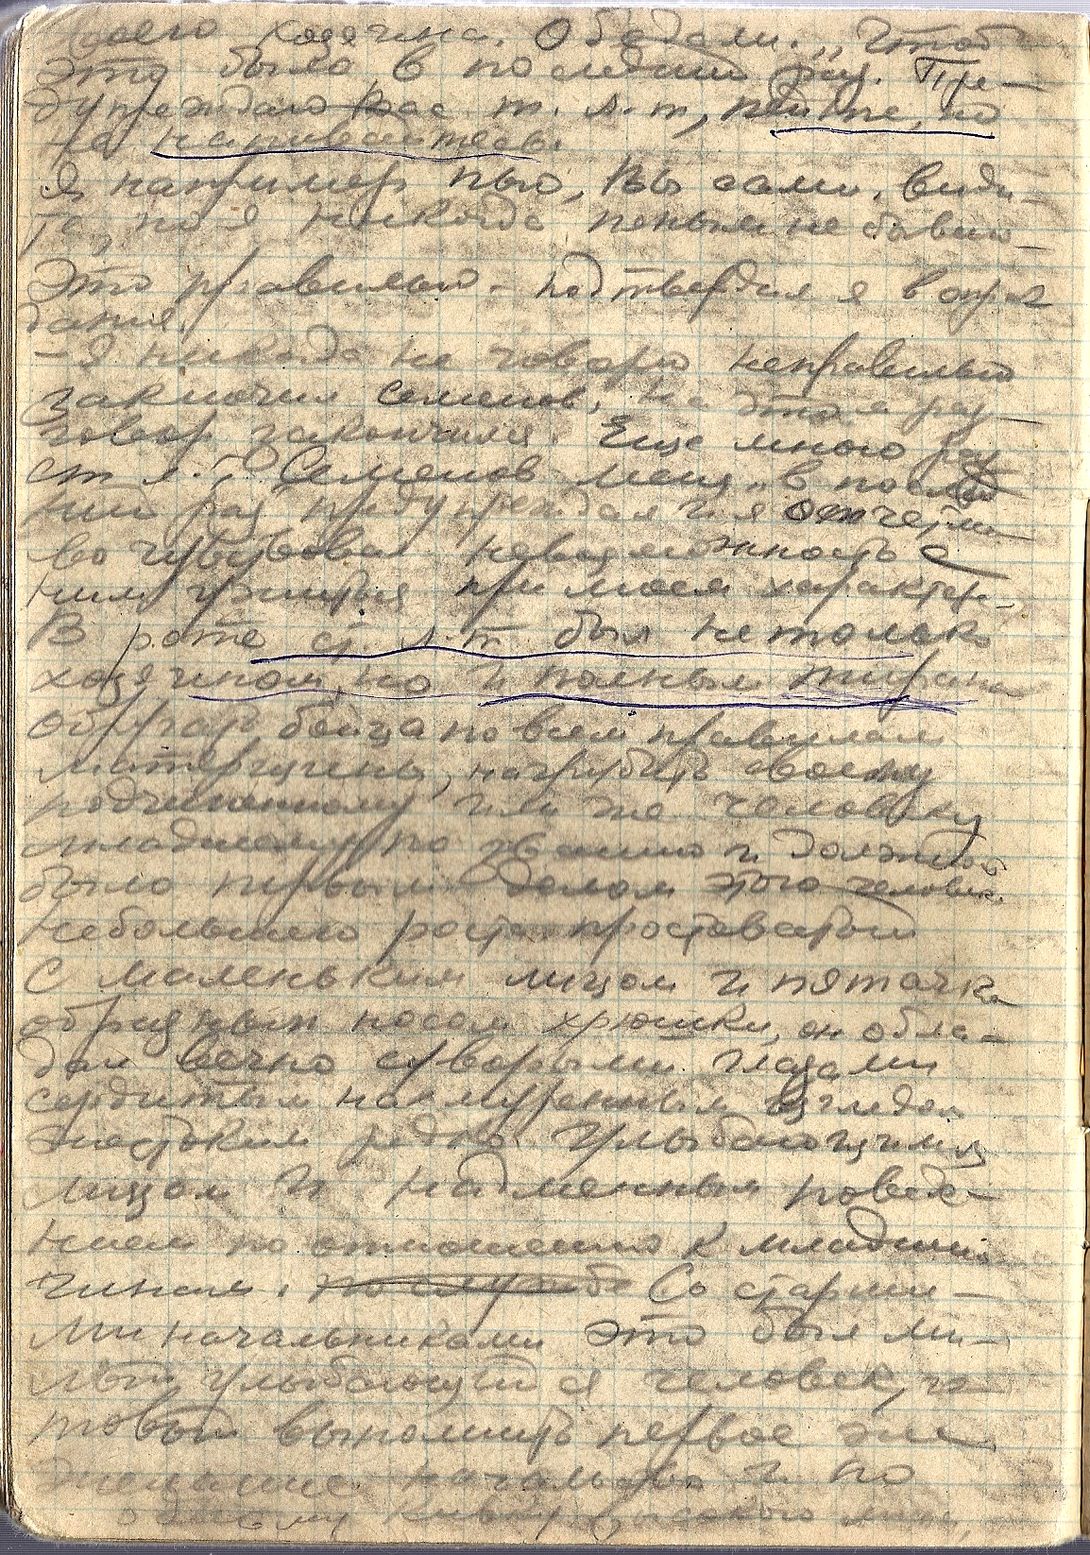 своего хозяина. Обедали. „Чтоб
это было в последний раз. Пре-
дупреждаю Вас т. л-т, пейте, но
не напивайтесь.
Я например пью, Вы сами види-
те, но я никогда пьяным не бываю
Это правильно - подтвердил я в оправ
дания.
- Я никогда не говорю неправильно
заключил Семенов. На этом раз-
говор закончился. Еще много раз
ст л-т Семенов меня „в послед
ний раз предупреждал" и я отчетли
во чувствовал невозможность с
ним ужиться при моем характере.
В роте ст л-т был не только
хозяином, но и полным тираном
обругать бойца по всем правилам
матерщины, нагрубить своему
подчиненному или же человеку
младшему по званию и должности
было первым делом этого человека.
Небольшого роста простоватый
С маленьким лицом и пятачка
образным носом хрюшки, он обла-
дал вечно суровыми глазами
сердитым нахмуренным взглядом
жестким редко улыбающимся
лицом и надменным поведе-
нием по отношению к младшим
чинам. Со старши-
ми начальниками это был ми-
лый улыбающийся человек, го-
товый выполнить первое же
желание начальства и по
одному кивку высокого